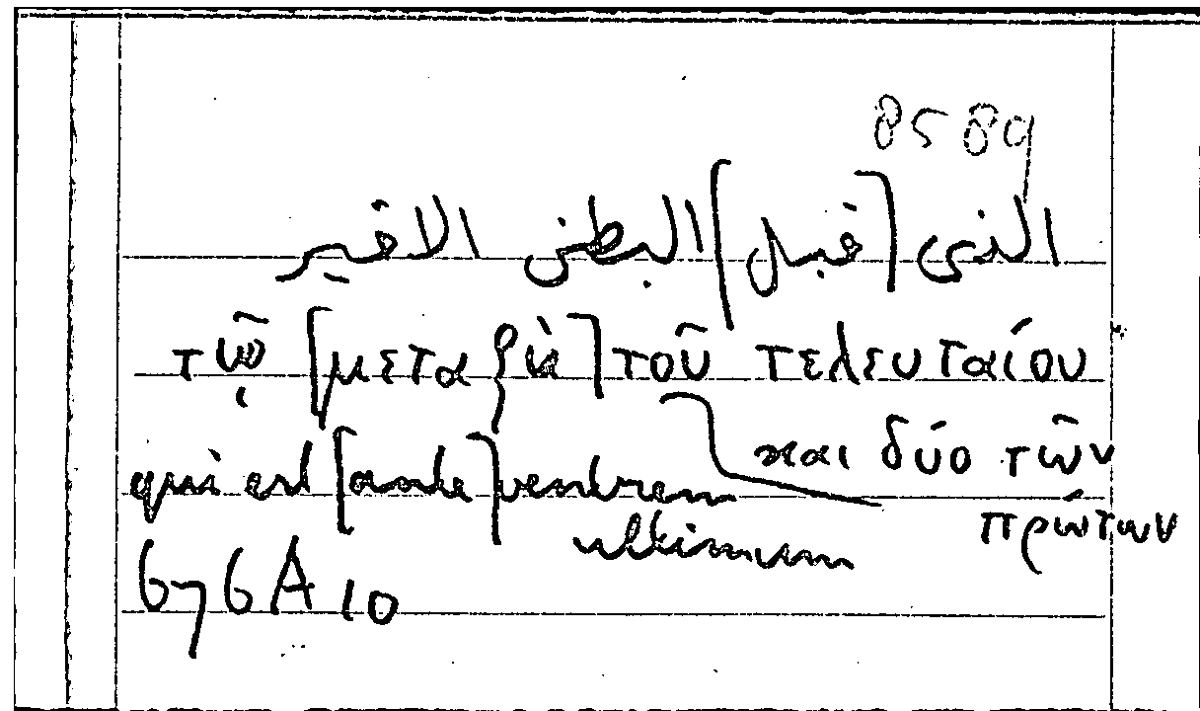 8589
الذى [قبل] البطن الاخير
τῷ [μεταξὺ] τοῦ τελευταίου
και δύο τῶν
πρώτων
qui est [ante] ventrem
ultimum
676A10